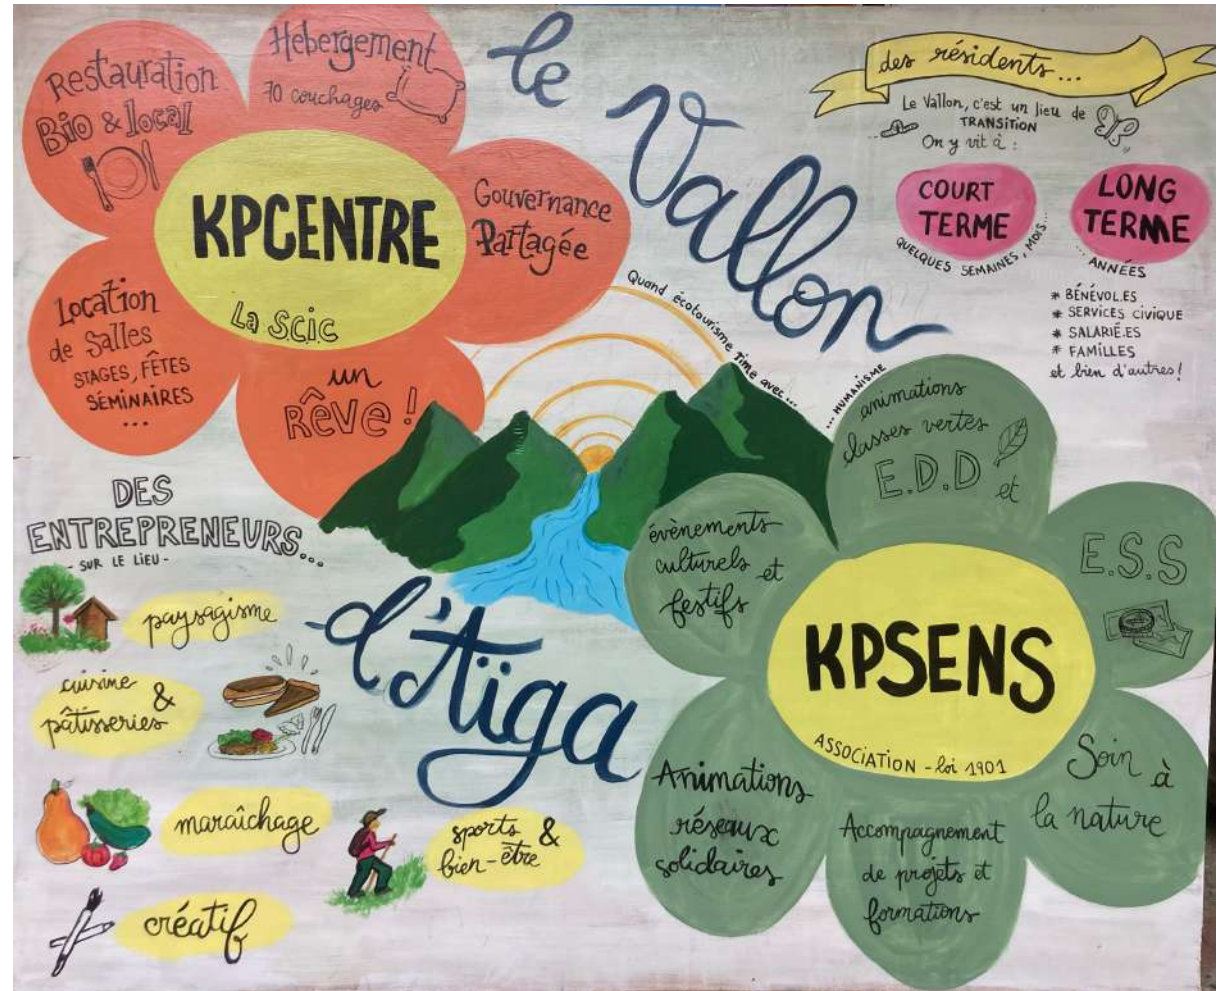 le
Vallon
d'Aïga
Restauration
Bio & local
Hébergement
70 couchages
KPCENTRE
La S.C.I.C
Gouvernance
Partagée
Location
de Salles
STAGES, FÊTES
SÉMINAIRES
...
un
RÊVE !
Quand écotourisme rime avec...
... HUMANISME
des résidents...
Le Vallon, c'est un lieu de
TRANSITION
On y vit à :
COURT
TERME
QUELQUES SEMAINES, MOIS...
LONG
TERME
... ANNÉES
* BÉNÉVOL.ES
* SERVICES CIVIQUE
* SALARIÉ.ES
* FAMILLES
et bien d'autres !
DES
ENTREPRENEURS...
- SUR LE LIEU -
paysagisme
cuisine &
pâtisseries
maraîchage
sports &
bien-être
créatif
animations
classes vertes
E.D.D et
évènements
culturels et
festifs
E.S.S
KPSENS
ASSOCIATION - loi 1901
Animations
réseaux
solidaires
Accompagnement
de projets et
formations
Soin à
la nature